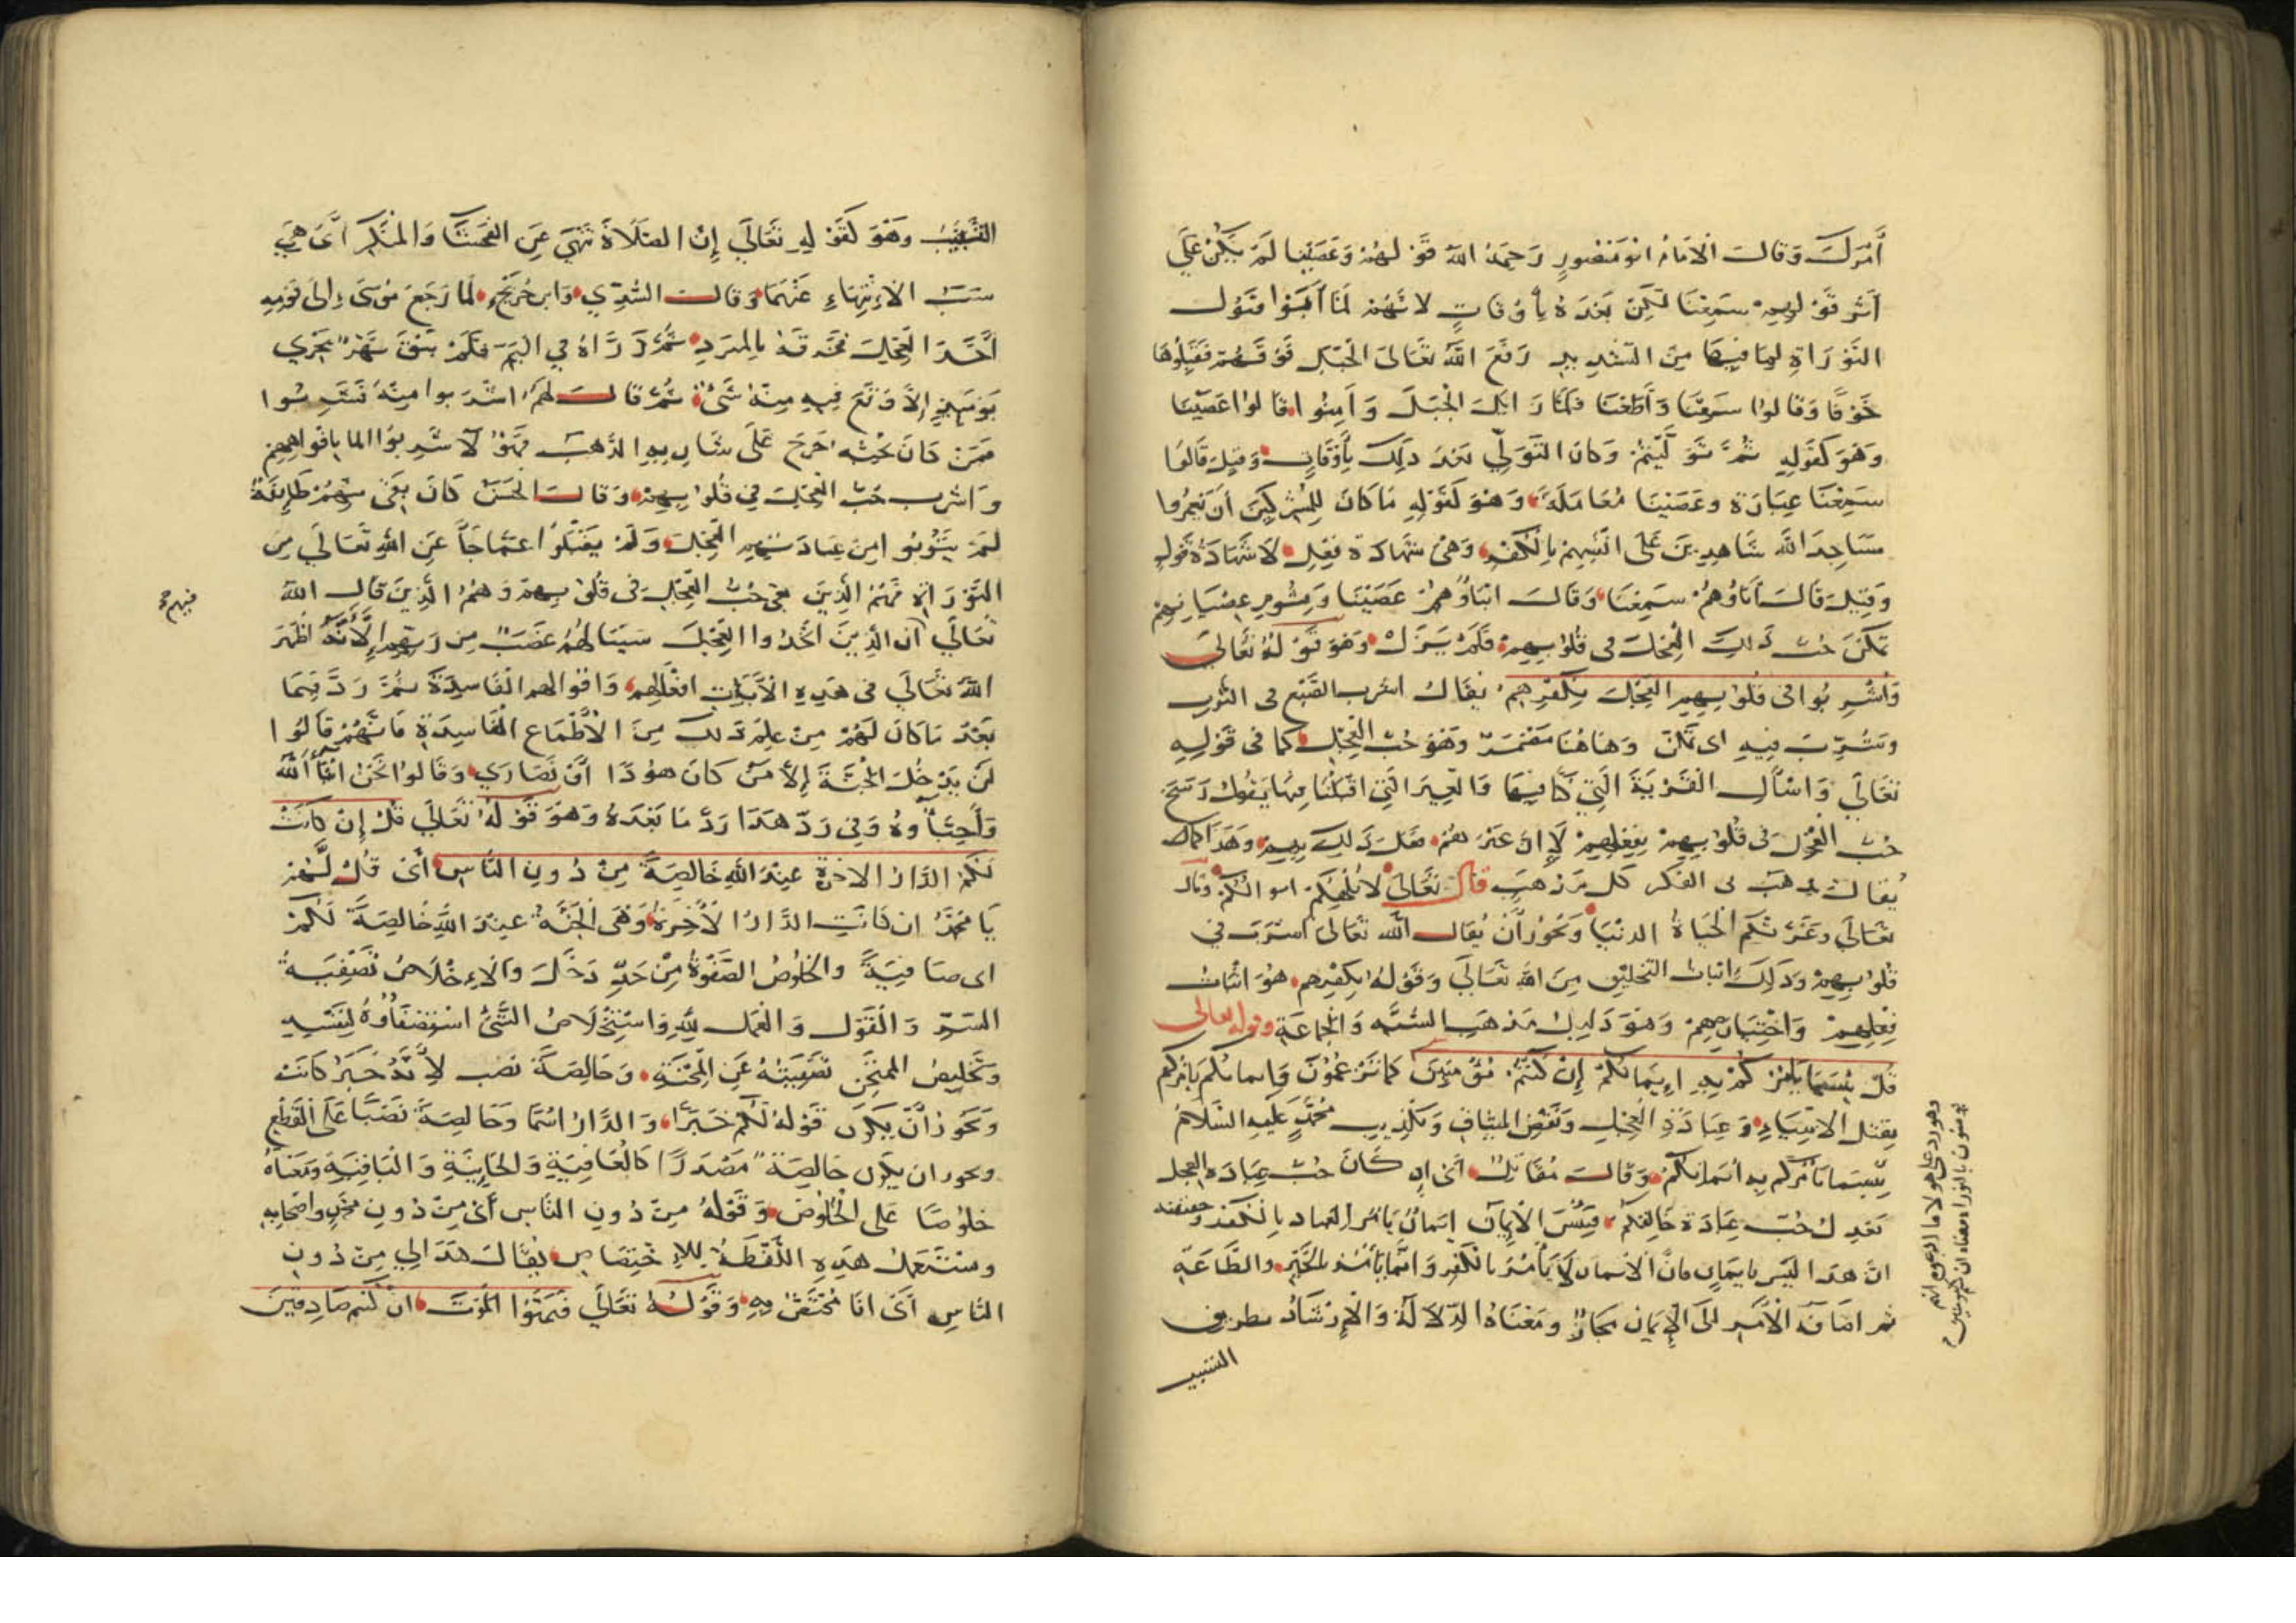 أَمْرَكَ وَقَالَ الْإِمَامُ ابُومَنْصُورٍ رَحِمَهُ اللهُ قَوْلُهُمْ وَعَصَيْنَا لَمْ يَكُنْ عَلَى
أَثَرِ قَوْلِهِمْ سَمِعْنَا لَكِنْ بَعْدَهُ بِأَوْقَاتٍ لانَّهُمْ لَمَّا أَبَوْا قَبُولَ
التَّوْرَاةِ لِمَا فِيهَا مِنَ التَّشْدِيدِ رَفَعَ اللهُ تَعَالَى الْجَبَلَ فَوْقَهُمْ فَقَبِلُوهَا
خَوْفًا وَقَالُوا سَمِعْنَا وَأَطَعْنَا فَلَمَّا زَايَلَ الْجَبَلُ وَأَمِنُوا قَالُوا عَصَيْنَا
وَهُوَ كَقَوْلِهِ ثُمَّ تَوَلَّيْتُمْ وَكَانَ التَّوَلِّي بَعْدَ ذَلِكَ بِأَوْقَاتٍ وَقِيلَ قَالُوا
سَمِعْنَا عِبَارَةً وَعَصَيْنَا مُعَامَلَةً وَهُوَ كَقَوْلِهِ مَا كَانَ لِلْمُشْرِكِينَ أَنْ يَعْمُرُوا
مَسَاجِدَ اللهِ شَاهِدِينَ عَلَى انْفُسِهِمْ بِالْكُفْرِ وَهِيَ شَهَادَةُ فِعْلٍ لَا شَهَادَةُ قَوْلٍ
وَقِيلَ قَالَ آبَاؤُهُمْ سَمِعْنَا وَقَالَ ابْنَاؤُهُمْ عَصَيْنَا وَبِشُومِ عِصْيَانِهِمْ
تَمَكَّنَ حُبُّ ذَلِكَ الْعِجْلِ فِى قُلُوبِهِمْ فَلَمْ يَزَلْ وَهُوَ قَوْلُهُ تَعَالَى
وَأُشْرِبُوا فِى قُلُوبِهِمِ الْعِجْلَ بِكُفْرِهِمْ يُقَالُ اشرب الصَّبْغ فى الثَّوْبِ
وَتَشَرَّبَ فِيهِ اى تَمَكَّنَ وَهَاهُنَا مُضْمَرٌ وَهُوَ حُبُّ الْعِجْلِ كما فى قَوْلِهِ
تَعَالَى وَاسْأَلِ الْقَرْيَةَ الَّتِي كُنَّا فِيهَا وَالْعِيرَ الَّتِي اقْبَلْنَا فِيهَا يَقُولُ رَسَخَ
حُبُّ الْعِجْلِ فِى قُلُوبِهِمْ بِفِعْلِهِمْ لَا انَّ غَيْرَهُمْ فَعَلَ ذَلِكَ بِهِمْ وَهَذَا كَمَا
يُقَالُ ذهب بى الفكر كل مَذْهَبٍ قال تَعَالَى لَا تُلْهِكُمْ اموالكم وقال
تَعَالَى وَغَرَّتْكُمُ الْحَيَاةُ الدُّنْيَا وَيَجُوزُ أَنْ يُقَالَ الله تَعَالَى اشرب فى
قُلُوبِهِمْ وَذَلِكَ اثبات التخليق مِنَ اللهِ تَعَالَى وَقَوْلُهُ بِكُفْرِهِمْ هُوَ اثْبَاتُ
فِعْلِهِمْ وَاخْتِيَارِهِمْ وَهُوَ دَلِيلُ مَذْهَبِ السُّنَّه وَالْجَمَاعَةِ وقوله تعالى
قُلْ بِئْسَمَا يَأْمُرُكُمْ بِهِ إِيمَانُكُمْ إِنْ كُنْتُمْ مُؤْمِنِينَ كَمَا تَزْعُمُونَ وَايمانكم يَأْمُرُكُمْ
بِقَتْلِ الانْبِيَاءِ وَعِبَادَةِ الْعِجْلِ وَنَقْضِ الْمِيثَاقِ وَتَكْذِيبِ مُحَمَّدٍ عَلَيْهِ السَّلَامُ
بِئْسَمَا يَأْمُرُكُمْ بِهِ ايمَانُكُمْ وَقَالَ مُقَاتِلٌ أَىْ إِنْ كَانَ حُبُّ عِبَادَةِ الْعِجْلِ
تَعْدِلُ حُبَّ عِبَادَةِ خَالِقِكُمْ فَبِئْسَ الْإِيمَانُ ايمَانٌ يَأْمُرُ العباد بِالْكُفْرِ وحقيقته
انَّ هَذَا لَيْسَ بِايمَانٍ فَانَّ الْايمان لَا يَأْمُرُ بالْكُفْرِ وَانَّمَا يَأْمُرُ بِالْخَيْرِ وَالطَّاعَةِ
ثم اضَافَةُ الْأَمْرِ الَى الْإِيمَانِ مَجَازٌ وَمَعْنَاهُ الدَّلَالَةُ وَالْإِرْشَادُ بطريق
التسبيب
وهو رد على هولاء ما ادعوه انهم
يومنون بالتوراة ومعناه ان كنتم مومنين
التَّسْبِيبِ وَهُوَ كَقَوْلِهِ تَعَالَى إِنَّ الصَّلَاةَ تَنْهَى عَنِ الْفَحْشَاءِ وَالْمُنْكَرِ أَىْ هِيَ
سَبَبُ الْإِنْتِهَاءِ عَنْهُمَا وَقَالَ السُّدِّي وَابْنُ جُرَيْجٍ لَمَّا رَجَعَ مُوسَى إِلَى قَوْمِهِ
أَخَذَ الْعِجْلَ فَحَرَقَهُ بِالْمِبْرَدِ ثُمَّ ذَرَّاهُ فِي الْيَمِّ فَلَمْ يَبْقَ نَهْرٌ يَجْرِي
يَوْمَئِذٍ إِلَّا وَقَعَ فِيهِ مِنْهُ شَىْءٌ ثُمَّ قَالَ لَهُمُ اشْرَبُوا مِنْهُ فَشَرِبُوا
فَمَنْ كَانَ يُحِبُّهُ خَرَجَ عَلَى شَارِبِهِ الذَّهَبُ فَهُوَ لَاءِ شَرِبُوا الما بِافْوَاهِهِمْ
وَاشْرِبَ حُبُّ الْعِجْلِ فِي قُلُوبِهِمْ وَقَالَ الْحَسَنُ كَانَ بَقِيَ مِنْهُمْ طَائِفَةٌ
لَمْ يَتُوبُوا مِنْ عِبَادَتِهِمِ الْعِجْلَ وَلَمْ يَقْبَلُوا مَا جَاءَ عَنِ اللهِ تَعَالَى مِنَ
التَّوْرَاةِ فَهُمُ الَّذِينَ بَقِيَ حُبُّ الْعِجْلِ فِى قُلُوبِهِمْ وَهُمُ الَّذِينَ قَالَ اللهُ
فيهم صح
تَعَالَى ان الَّذِينَ اتَّخَذُوا الْعِجْلَ سَيَنَالُهُمْ غَضَبٌ مِنْ رَبِّهِمْ إِلَّا أَنَّهُ اظْهَرَ
اللهُ تَعَالَى فِى هَذِهِ الْآيَاتِ افْعَالَهُمْ وَاقْوَالَهم الْفَاسِدَةَ ثُمَّ رَدَّ فِيمَا
بَعْدُ مَا كَانَ لَهُمْ مِنْ عِلْمِ ذَلِكَ مِنَ الْأَطْمَاعِ الْفَاسِدَةِ فَانَّهُمْ قَالُوا
لَنْ يَدْخُلَ الْجَنَّةَ إِلَّا مَنْ كَانَ هُودًا أَوْ نَصَارَي وَقَالُوا نَحْنُ ابْنَاءُ اللهِ
وَأَحِبَّاؤُهُ وَفِي رَدِّ هَذَا رَدُّ مَا بَعْدَهُ وَهُوَ قَوْلُهُ تَعَالَى قُلْ إِنْ كَانَتْ
لَكُمُ الدَّارُ الاخرَةُ عِنْدَ اللهِ خَالِصَةً مِنْ دُونِ النَّاسِ أَىْ قُلْ لَهُمْ
يَا مُحَمَّدُ ان كَانَتِ الدَّارُ الْآخِرَةُ وَهِيَ الْجَنَّةُ عِنْدَ اللهِ خَالِصَةً لَكُمْ
اى صَافِيَةً وَالْخُلُوصُ الصَّفْوَةُ مِنْ حَدِّ دَخَلَ وَالْإِخْلَاصُ تَصْفِيَةُ
السِّرِّ وَالْقَوْلِ وَالْعَمَلِ لِلَّهِ وَاسْتِخْلَاصُ الشَّيْءِ اسْتِصْفَاؤُهُ لِنَفْسِهِ
وَتَخْلِيصُ الْمُمْتَحَنِ تَصْفِيَتُهُ عَنِ الْمِحْنَةِ وَخَالِصَةً نصب لِأَنَّهُ خَبَرُ كَانَتْ
وَيَجُوزُ أَنْ يَكُونَ قَوْلُهُ لَكُمْ خَبَرًا وَالدَّارُ اسْمًا وَخَالِصَةً نَصْبًا عَلَى الْقَطْعِ
ويجوز ان يكون خَالِصَةً مَصْدَرًا كَالْعَافِيَةِ وَالْخَايِنَةِ وَالْبَاقِيَةِ وَمَعْنَاهُ
خُلُوصًا عَلَى الْخُلُوصِ وَقَوْلُهُ مِنْ دُونِ النَّاسِ أَىْ مِنْ دُونِ مُحَمَّدٍ وَاصْحَابِهِ
وَيُسْتَعْمَلُ هَذِهِ اللَّفْظَةُ لِلْإِخْتِصَاصِ يُقَالُ هَذَا لِي مِنْ دُونِ
النَّاسِ أَىْ انَا مُخْتَصٌّ بِهِ وَقَوْلُهُ تَعَالَى فَتَمَنَّوُا الْمَوْتَ انْ كُنْتُمْ صَادِقِينَ